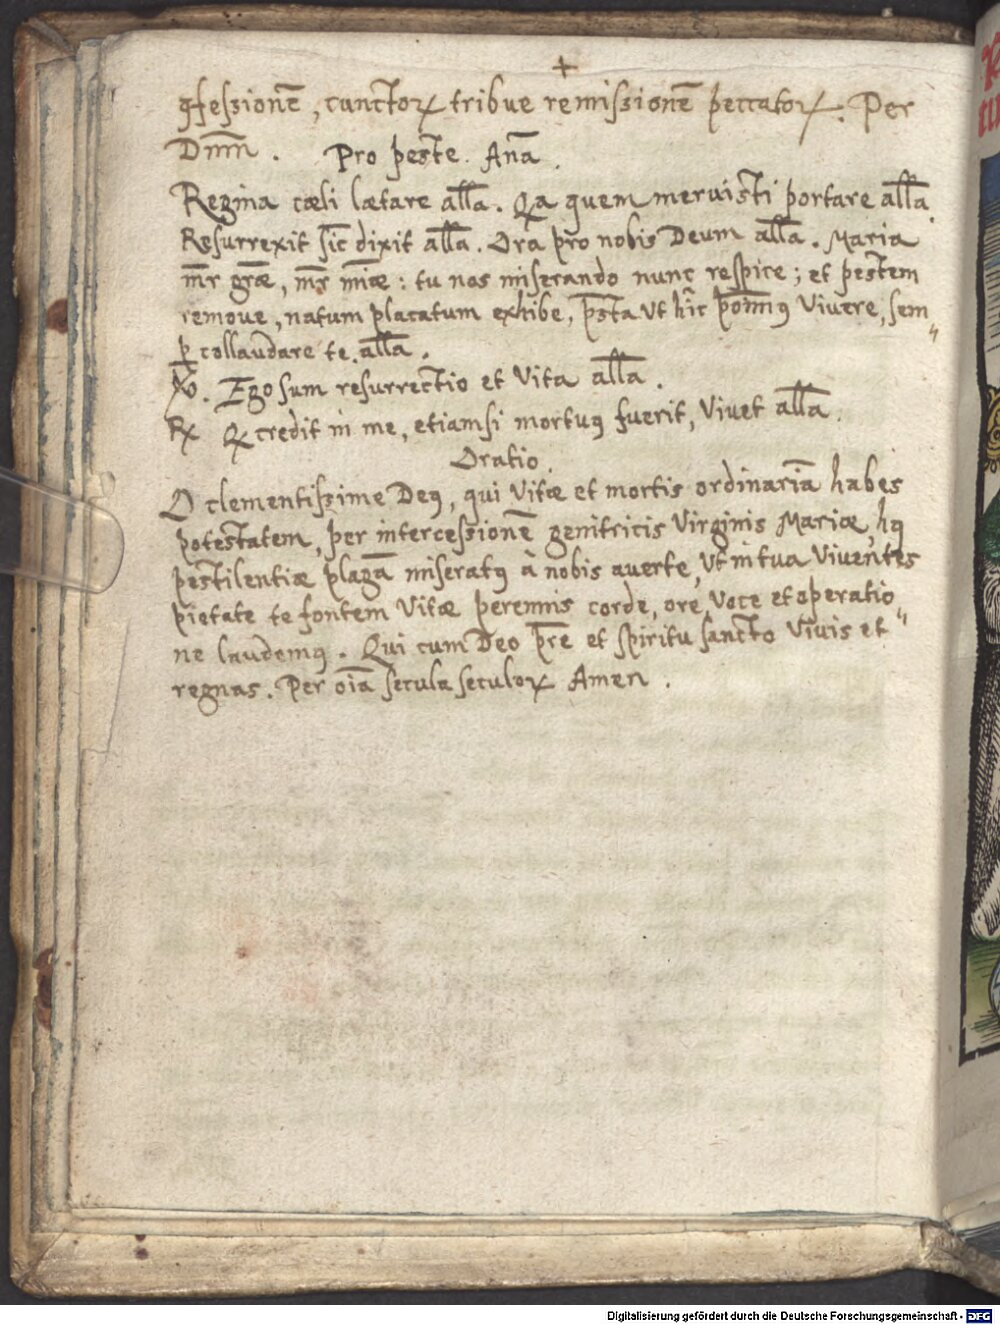 ✝
ꝯfessionē, cunctoꝝ tribue remissionē peccatoꝝ. Per
Dn̄m̄. Pro peste. Anā.
Regina cæli lætare all̄a. Qa quem meruisti portare all̄a.
Resurrexit sic dixit all̄a. Ora pro nobis Deum all̄a. Maria
mr̄ grāæ, mr̄ miāæ: tu nos miserando nunc respice; et pestem
remove, natum placatum exhibe, p̄sta Ut hic possimꝰ Vivere, sem〃
ꝑ collaudare te all̄a.
℣. Ego sum resurrectio et Vita all̄a.
℟ Q credit in me, etiamsi mortuꝰ fuerit, Vivet all̄a.
Oratio.
O clementissime Deꝰ, qui Vitæ et mortis ordinariā habes
potestatem, per intercessionē genitricis Virginis Mariæ, hꝰ
pestilentiæ plagā miseratꝰ à nobis averte, Ut in tua Viventes
pietate te fontem Vitæ perennis corde, ore, Voce et operatio〃
ne laudemꝰ. Qui cum Deo p̄re et Spiritu sancto Vivis et
regnas. Per oīa secula seculoꝝ Amen.
Digitalisierung gefördert durch die Deutsche Forschungsgemeinschaft - DFG